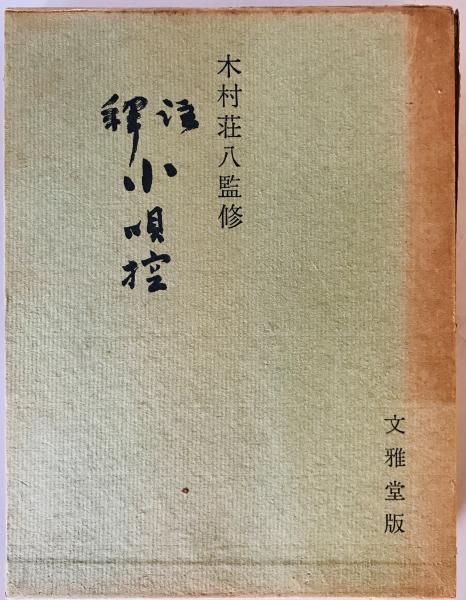 木村荘八監修
註釋
小唄控
文雅堂版